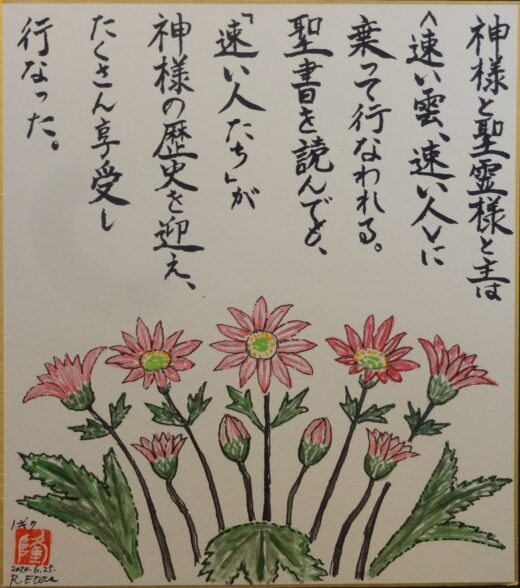 神様と聖霊様と主は
〈速い雲、速い人〉に
乗って行なわれる。
聖書を読んでも、
「速い人たち」が
神様の歴史を迎え、
たくさん享受し
行なった。
ノギク
隆
2020.6.25.